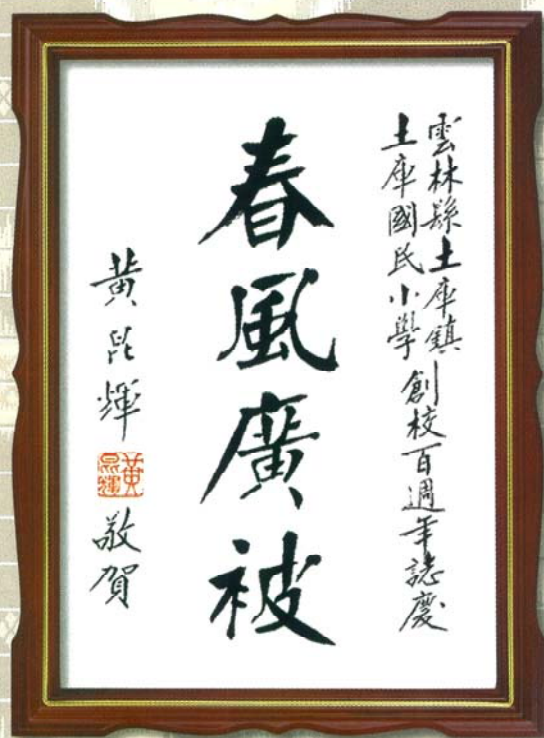 雲林縣土庫鎮
土庫國民小學創校百週年誌慶
春風廣被
黃昆輝
黃昆輝
敬賀